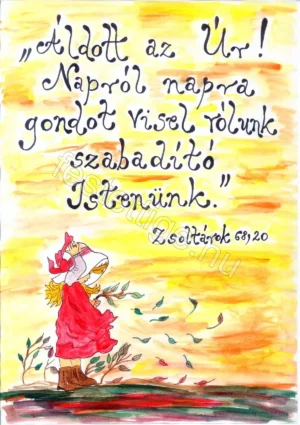 „Áldott az Úr!
Napról napra
gondot visel rólunk
szabadító
Istenünk.”
Zsoltárok 68,20